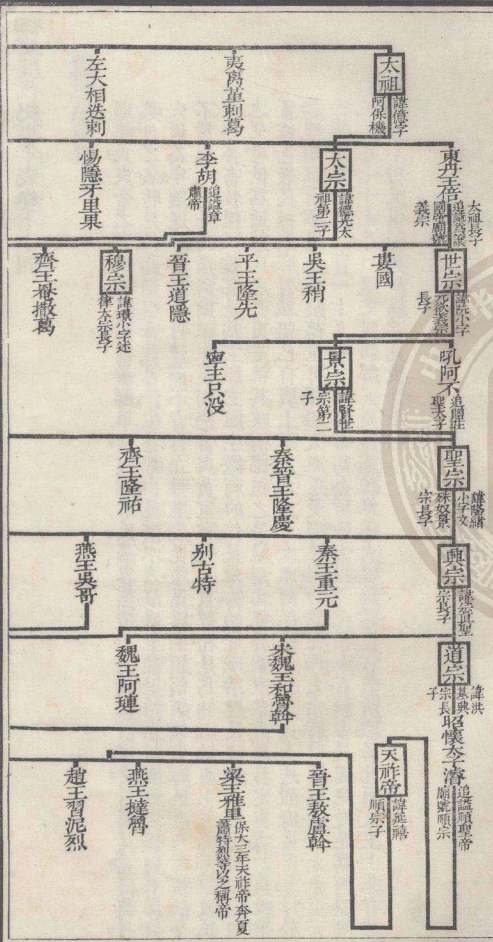 太祖
諱億字
阿保機
夷离堇剌葛
左大相迭剌
東丹王倍
太祖長子
追諡爲讓
國帝廟號
義宗
太宗
諱德光太
祖第二子
李胡
追諡章
肅帝
惕隱牙里果
世宗
諱阮小字
兀欲義宗
長子
婁國
吳王稍
平王隆先
晉王道隱
穆宗
諱璟小字述
律太宗長子
齊王罨撒葛
吼阿不
追贈莊
聖太子
景宗
諱賢世
宗第二
子
寧王只沒
聖宗
諱隆緒
小字文
殊奴景
宗長子
秦晉王隆慶
齊王隆祐
興宗
諱宗真聖
宗長子
秦王重元
别古特
燕王吳哥
道宗
諱洪
基興
宗長
子
宋魏王和魯斡
魏王阿璉
昭懷太子濬
追諡順聖帝
廟號順宗
天祚帝
諱延禧
順宗子
晉王敖盧斡
梁王雅里
保大三年天祚帝奔夏
蕭特烈等以之稱帝
燕王撻魯
趙王習泥烈